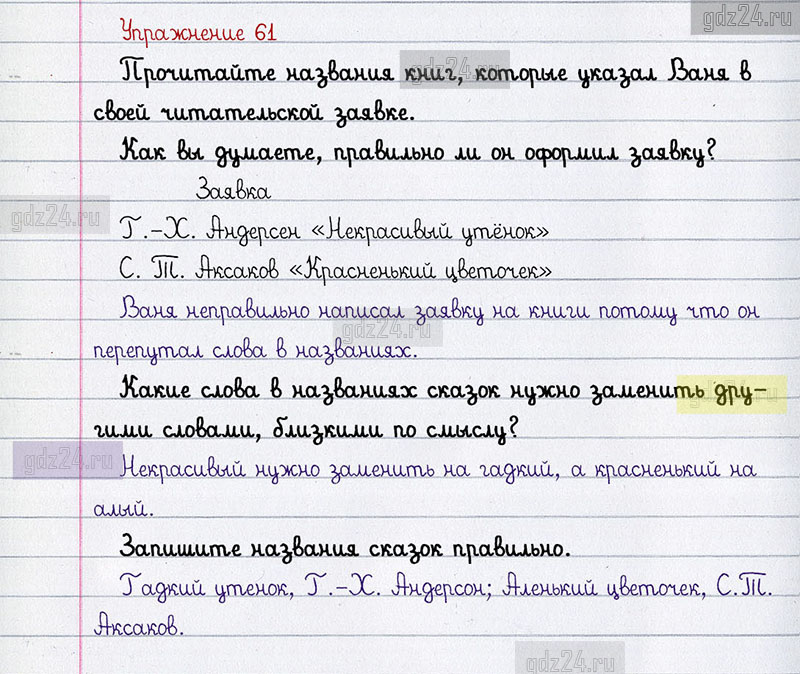 gdz24.ru
Упражнение 61
Прочитайте названия книг, которые указал Ваня в
gdz24.ru
своей читательской заявке.
Как вы думаете, правильно ли он оформил заявку?
Заявка
gdz24.ru
Г.-Х. Андерсен «Некрасивый утёнок»
С. Т. Аксаков «Красненький цветочек»
Ваня неправильно написал заявку на книги потому что он
gdz24.ru
перепутал слова в названиях.
Какие слова в названиях сказок нужно заменить дру-
gdz24.ru
гими словами, близкими по смыслу?
gdz24.ru
Некрасивый нужно заменить на гадкий, а красненький на
алый.
Запишите названия сказок правильно.
Гадкий утенок, Г.-Х. Андерсон; Аленький цветочек, С.Т.
Аксаков.
gdz24.ru